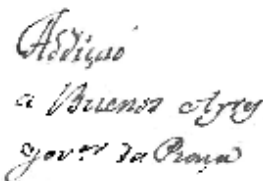 Addição
a Buenos Ayres
gov.or da Praça